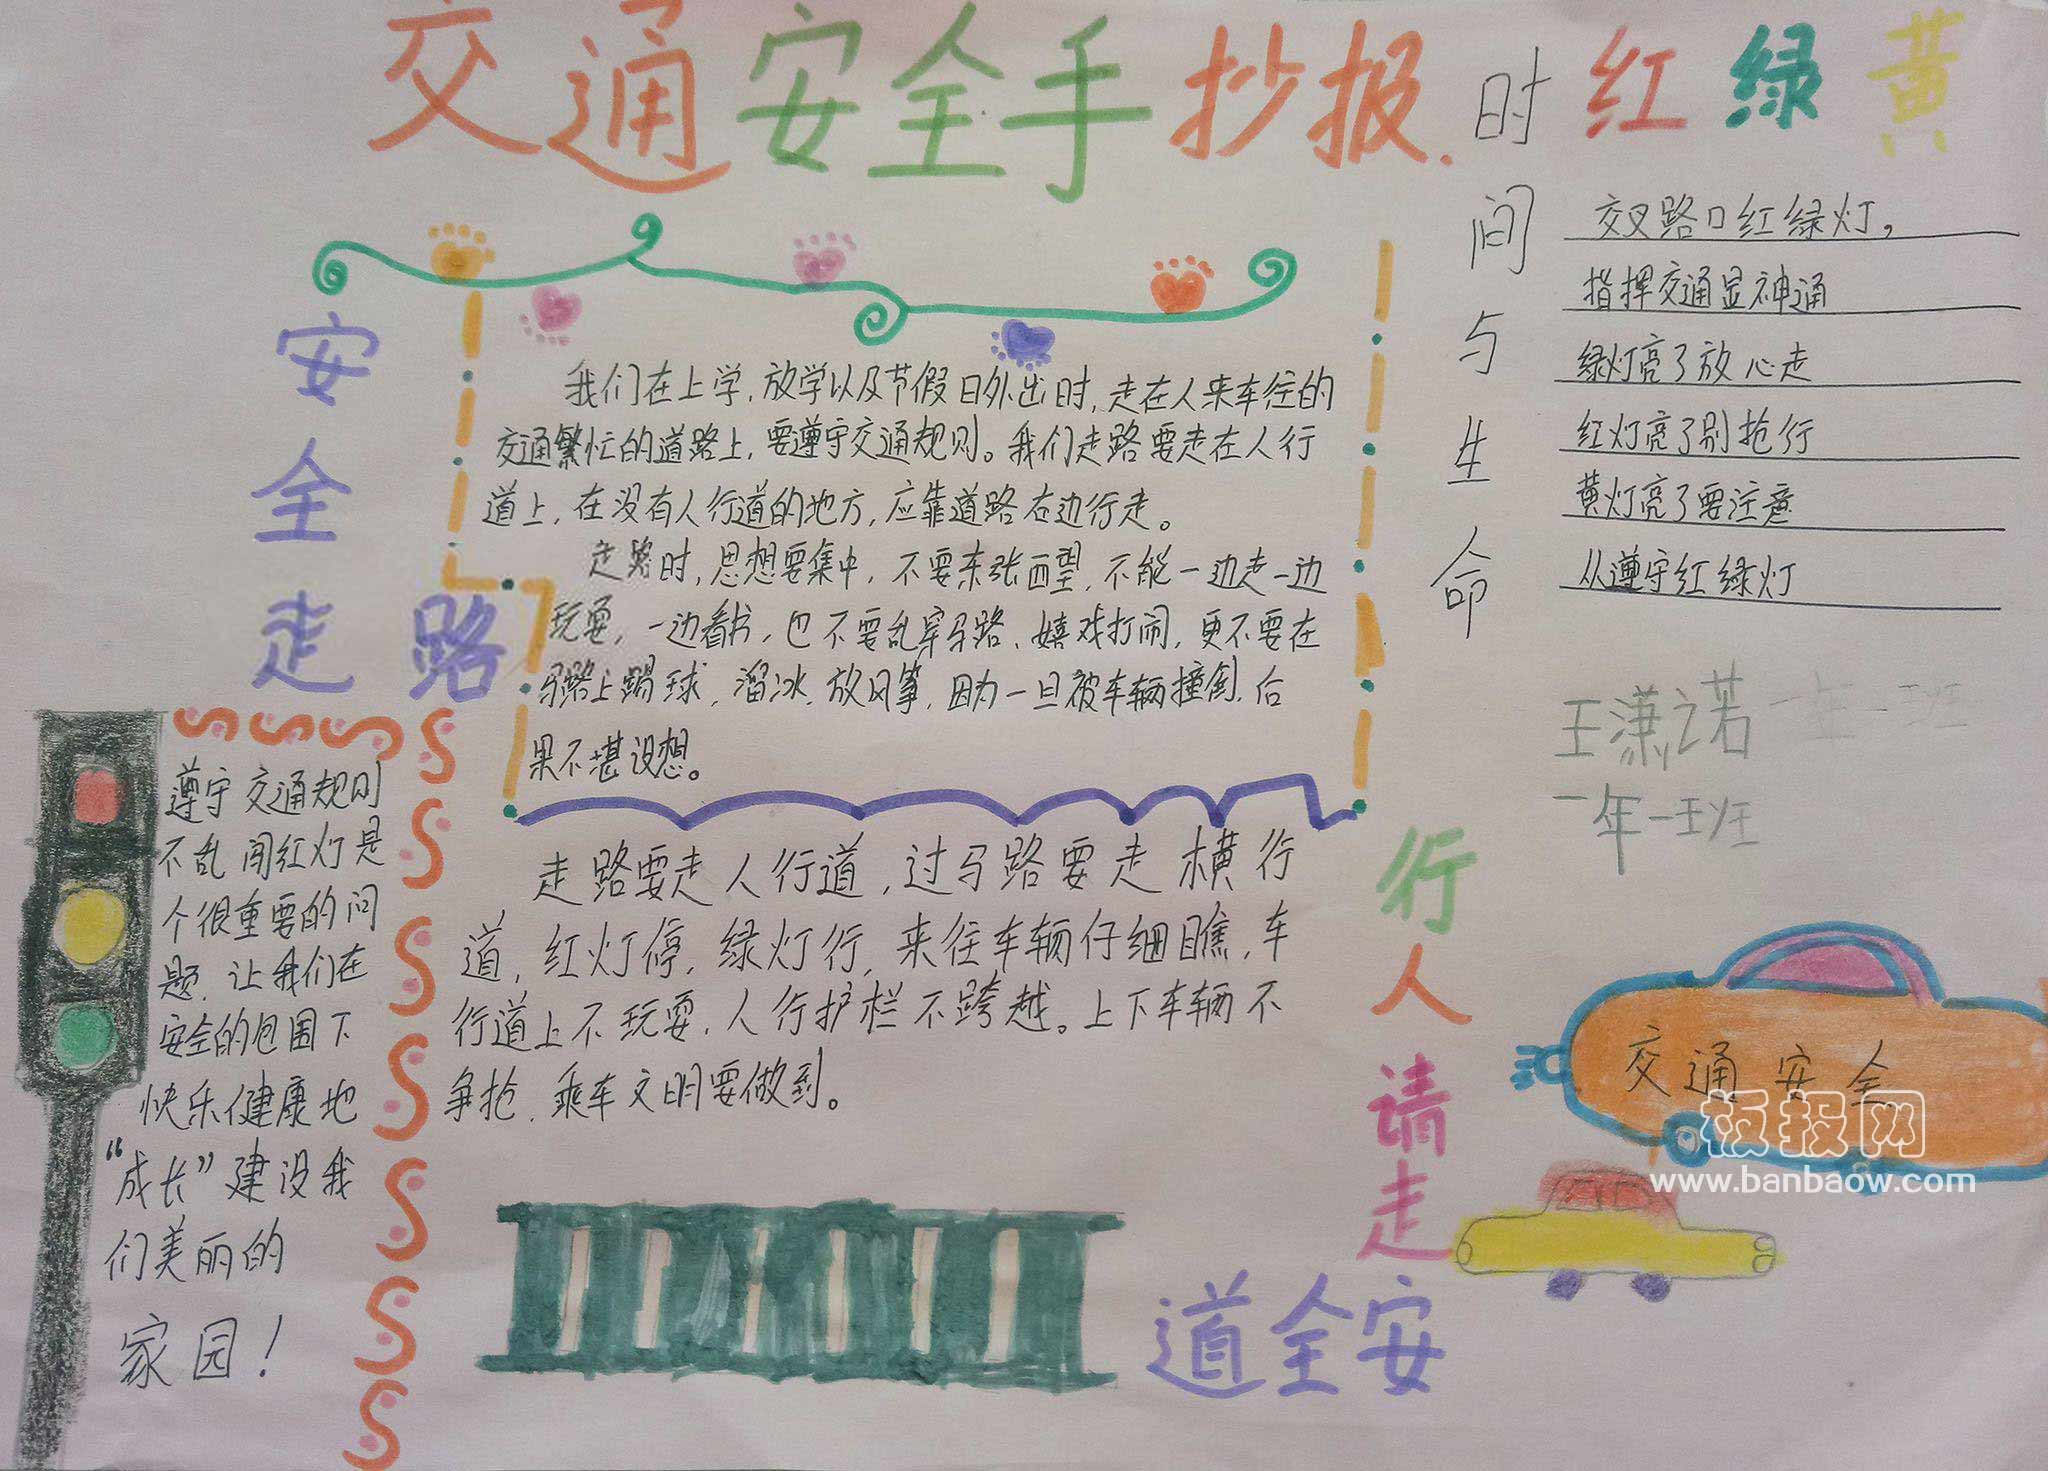 交通安全手抄报.
时间与生命
红绿黄
交叉路口红绿灯,
指挥交通显神通
绿灯亮了放心走
红灯亮了别抢行
黄灯亮了要注意
从遵守红绿灯
王潇之若
一年一班
一年一班
安全走路
我们在上学,放学以及节假日外出时,走在人来车往的
交通繁忙的道路上,要遵守交通规则。我们走路要走在人行
道上,在没有人行道的地方,应靠道路右边行走。
走路时,思想要集中,不要东张西望,不能一边走一边
玩耍,一边看书,也不要乱穿马路、嬉戏打闹,更不要在
马路上踢球,溜冰,放风筝,因为一旦被车辆撞倒,后
果不堪设想。
遵守交通规则
不乱闯红灯是
个很重要的问
题,让我们在
安全的包围下
快乐健康地
“成长”建设我
们美丽的
家园!
走路要走人行道,过马路要走横行
道,红灯停,绿灯行,来往车辆仔细瞧,车
行道上不玩耍,人行护栏不跨越。上下车辆不
争抢,乘车文明要做到。
行人请走
道全安
交通安全
板报网
www.banbaow.com